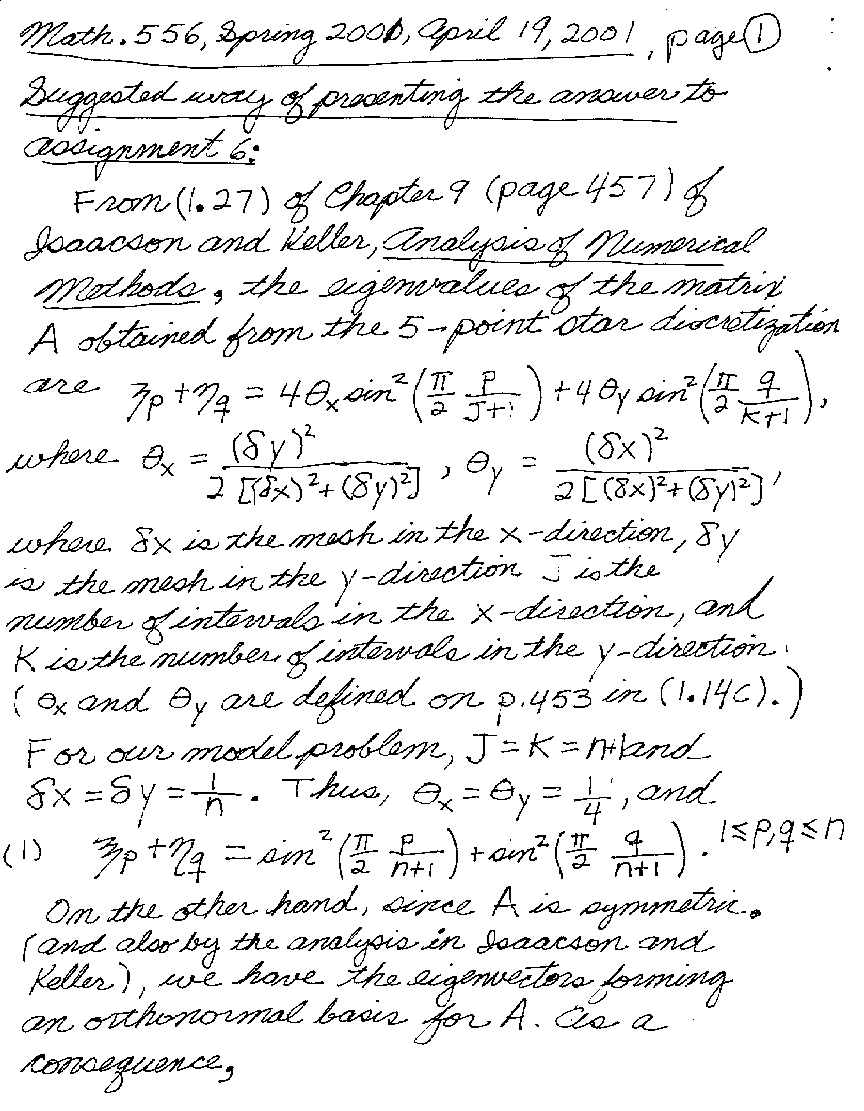 Math. 556, Spring 2001, April 19, 2001, page 1
Suggested way of presenting the answer to
assignment 6:
From (1.27) of Chapter 9 (page 457) of
Isaacson and Keller, Analysis of Numerical
Methods, the eigenvalues of the matrix
A obtained from the 5-point star discretization
are ξp + ηq = 4θx sin²(π/2 p/(J+1)) + 4θy sin²(π/2 q/(K+1)),
where θx = (δy)²/(2[(δx)²+(δy)²]), θy = (δx)²/(2[(δx)²+(δy)²]),
where δx is the mesh in the x-direction, δy
is the mesh in the y-direction J is the
number of intervals in the x-direction, and
K is the number of intervals in the y-direction.
(θx and θy are defined on p.453 in (1.14c).)
For our model problem, J=K=n+1 and
δx = δy = 1/n. Thus, θx = θy = 1/4, and
(1) ξp + ηq = sin²(π/2 p/(n+1)) + sin²(π/2 q/(n+1)). 1≤p,q≤n
On the other hand, since A is symmetric.
(and also by the analysis in Isaacson and
Keller), we have the eigenvectors forming
an orthonormal basis for A. As a
consequence,